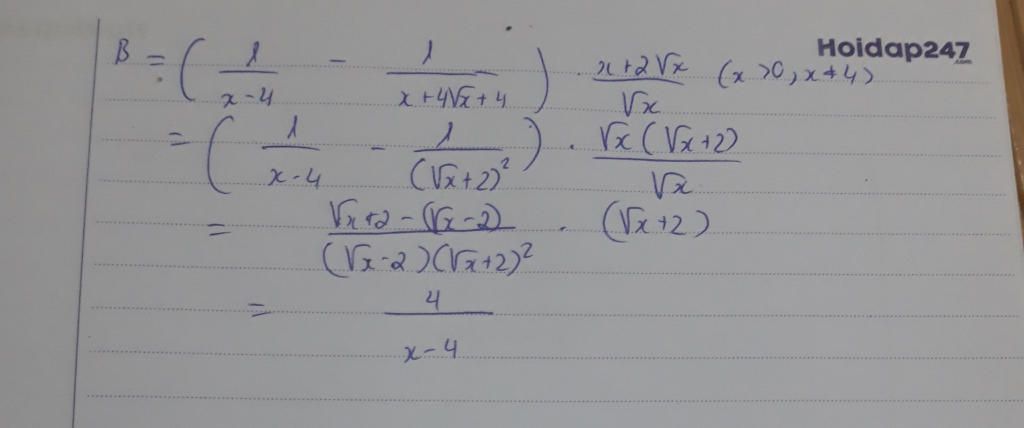 Hoidap247.com
B = ( 1/(x-4) - 1/(x+4√x+4) ) . (x+2√x)/√x (x>0, x≠4)
= ( 1/(x-4) - 1/(√x+2)² ) . √x(√x+2)/√x
= (√x+2-(√x-2))/((√x-2)(√x+2)²) . (√x+2)
= 4/(x-4)